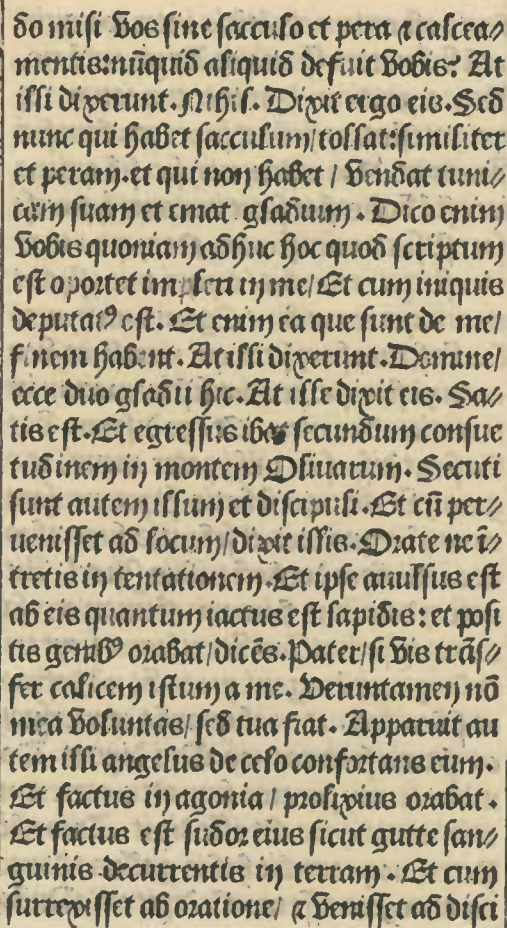 do misi vos sine sacculo et pera ⁊ calcea⸗
mentis: nūquid aliquid defuit vobis? At
illi dixerunt. Nihil. Dixit ergo eis. Sed
nunc qui habet sacculum / tollat: similiter
et peram. et qui non habet / vendat tuni⸗
cam suam et emat gladium. Dico enim
vobis quoniam adhuc hoc quod scriptum
est oportet impleri in me / Et cum iniquis
deputatꝰ est. Et enim ea que sunt de me /
finem habent. At illi dixerunt. Domine /
ecce duo gladii hic. At ille dixit eis. Sa⸗
tis est. Et egressus ibat secundum consue
tudinem in montem Oliuarum. Secuti
sunt autem illum et discipuli. Et cū per⸗
uenisset ad locum / dixit illis. Orate ne ī⸗
tretis in tentationem. Et ipse auulsus est
ab eis quantum iactus est lapidis: et posi
tis genibꝰ orabat / dicēs. Pater / si vis trās⸗
fer calicem istum a me. Veruntamen nō
mea voluntas / sed tua fiat. Apparuit au
tem illi angelus de celo confortans eum.
Et factus in agonia / prolixius orabat.
Et factus est sudor eius sicut gutte san⸗
guinis decurrentis in terram. Et cum
surrexisset ab oratione / ⁊ venisset ad disci